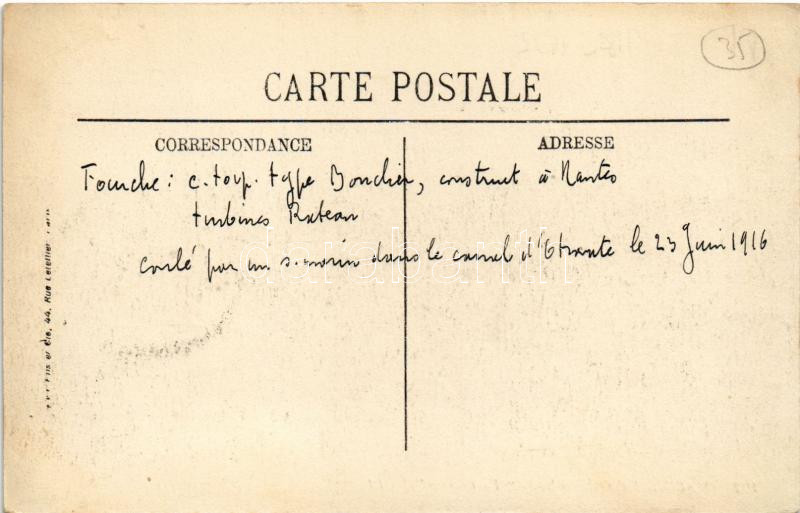 35
CARTE POSTALE
CORRESPONDANCE
ADRESSE
Fourche : c. torp. type Bouclier, construit à Nantes
turbines Rateau
coulé par un s. marin dans le canal d'Otrante le 23 Juin 1916
Fils et Cie, 44, Rue Letellier
darabanth